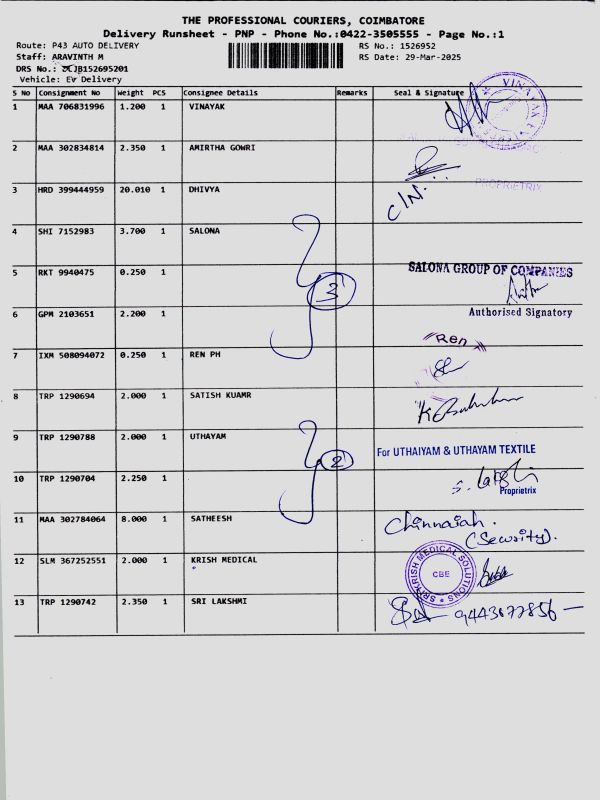 THE PROFESSIONAL COURIERS, COIMBATORE
Delivery Runsheet - PNP - Phone No.:0422-3505555 - Page No.:1
Route: P43 AUTO DELIVERY RS No.: 1526952
Staff: ARAVINTH M RS Date: 29-Mar-2025
DRS No.: JB152695201
Vehicle: Ev Delivery
S No Consignment No Weight PCS Consignee Details Remarks Seal & Signature
1 MAA 706831996 1.200 1 VINAYAK
VINAYAK
2 MAA 302834814 2.350 1 AMIRTHA GOWRI
PROPRIETRIX
3 HRD 399444959 20.010 1 DHIVYA
4 SHI 7152983 3.700 1 SALONA
3
5 RKT 9940475 0.250 1 SALONA GROUP OF COMPANIES
6 GPM 2103651 2.200 1 Authorised Signatory
"Ren"
7 IXM 508094072 0.250 1 REN PH
8 TRP 1290694 2.000 1 SATISH KUAMR
9 TRP 1290788 2.000 1 UTHAYAM For UTHAIYAM & UTHAYAM TEXTILE
2
10 TRP 1290704 2.250 1 Proprietrix
11 MAA 302784064 8.000 1 SATHEESH Chinnaiah.
(Security).
12 SLM 367252551 2.000 1 KRISH MEDICAL
SRI KRISH MEDICAL SOLUTIONS
CBE
13 TRP 1290742 2.350 1 SRI LAKSHMI 9443677856